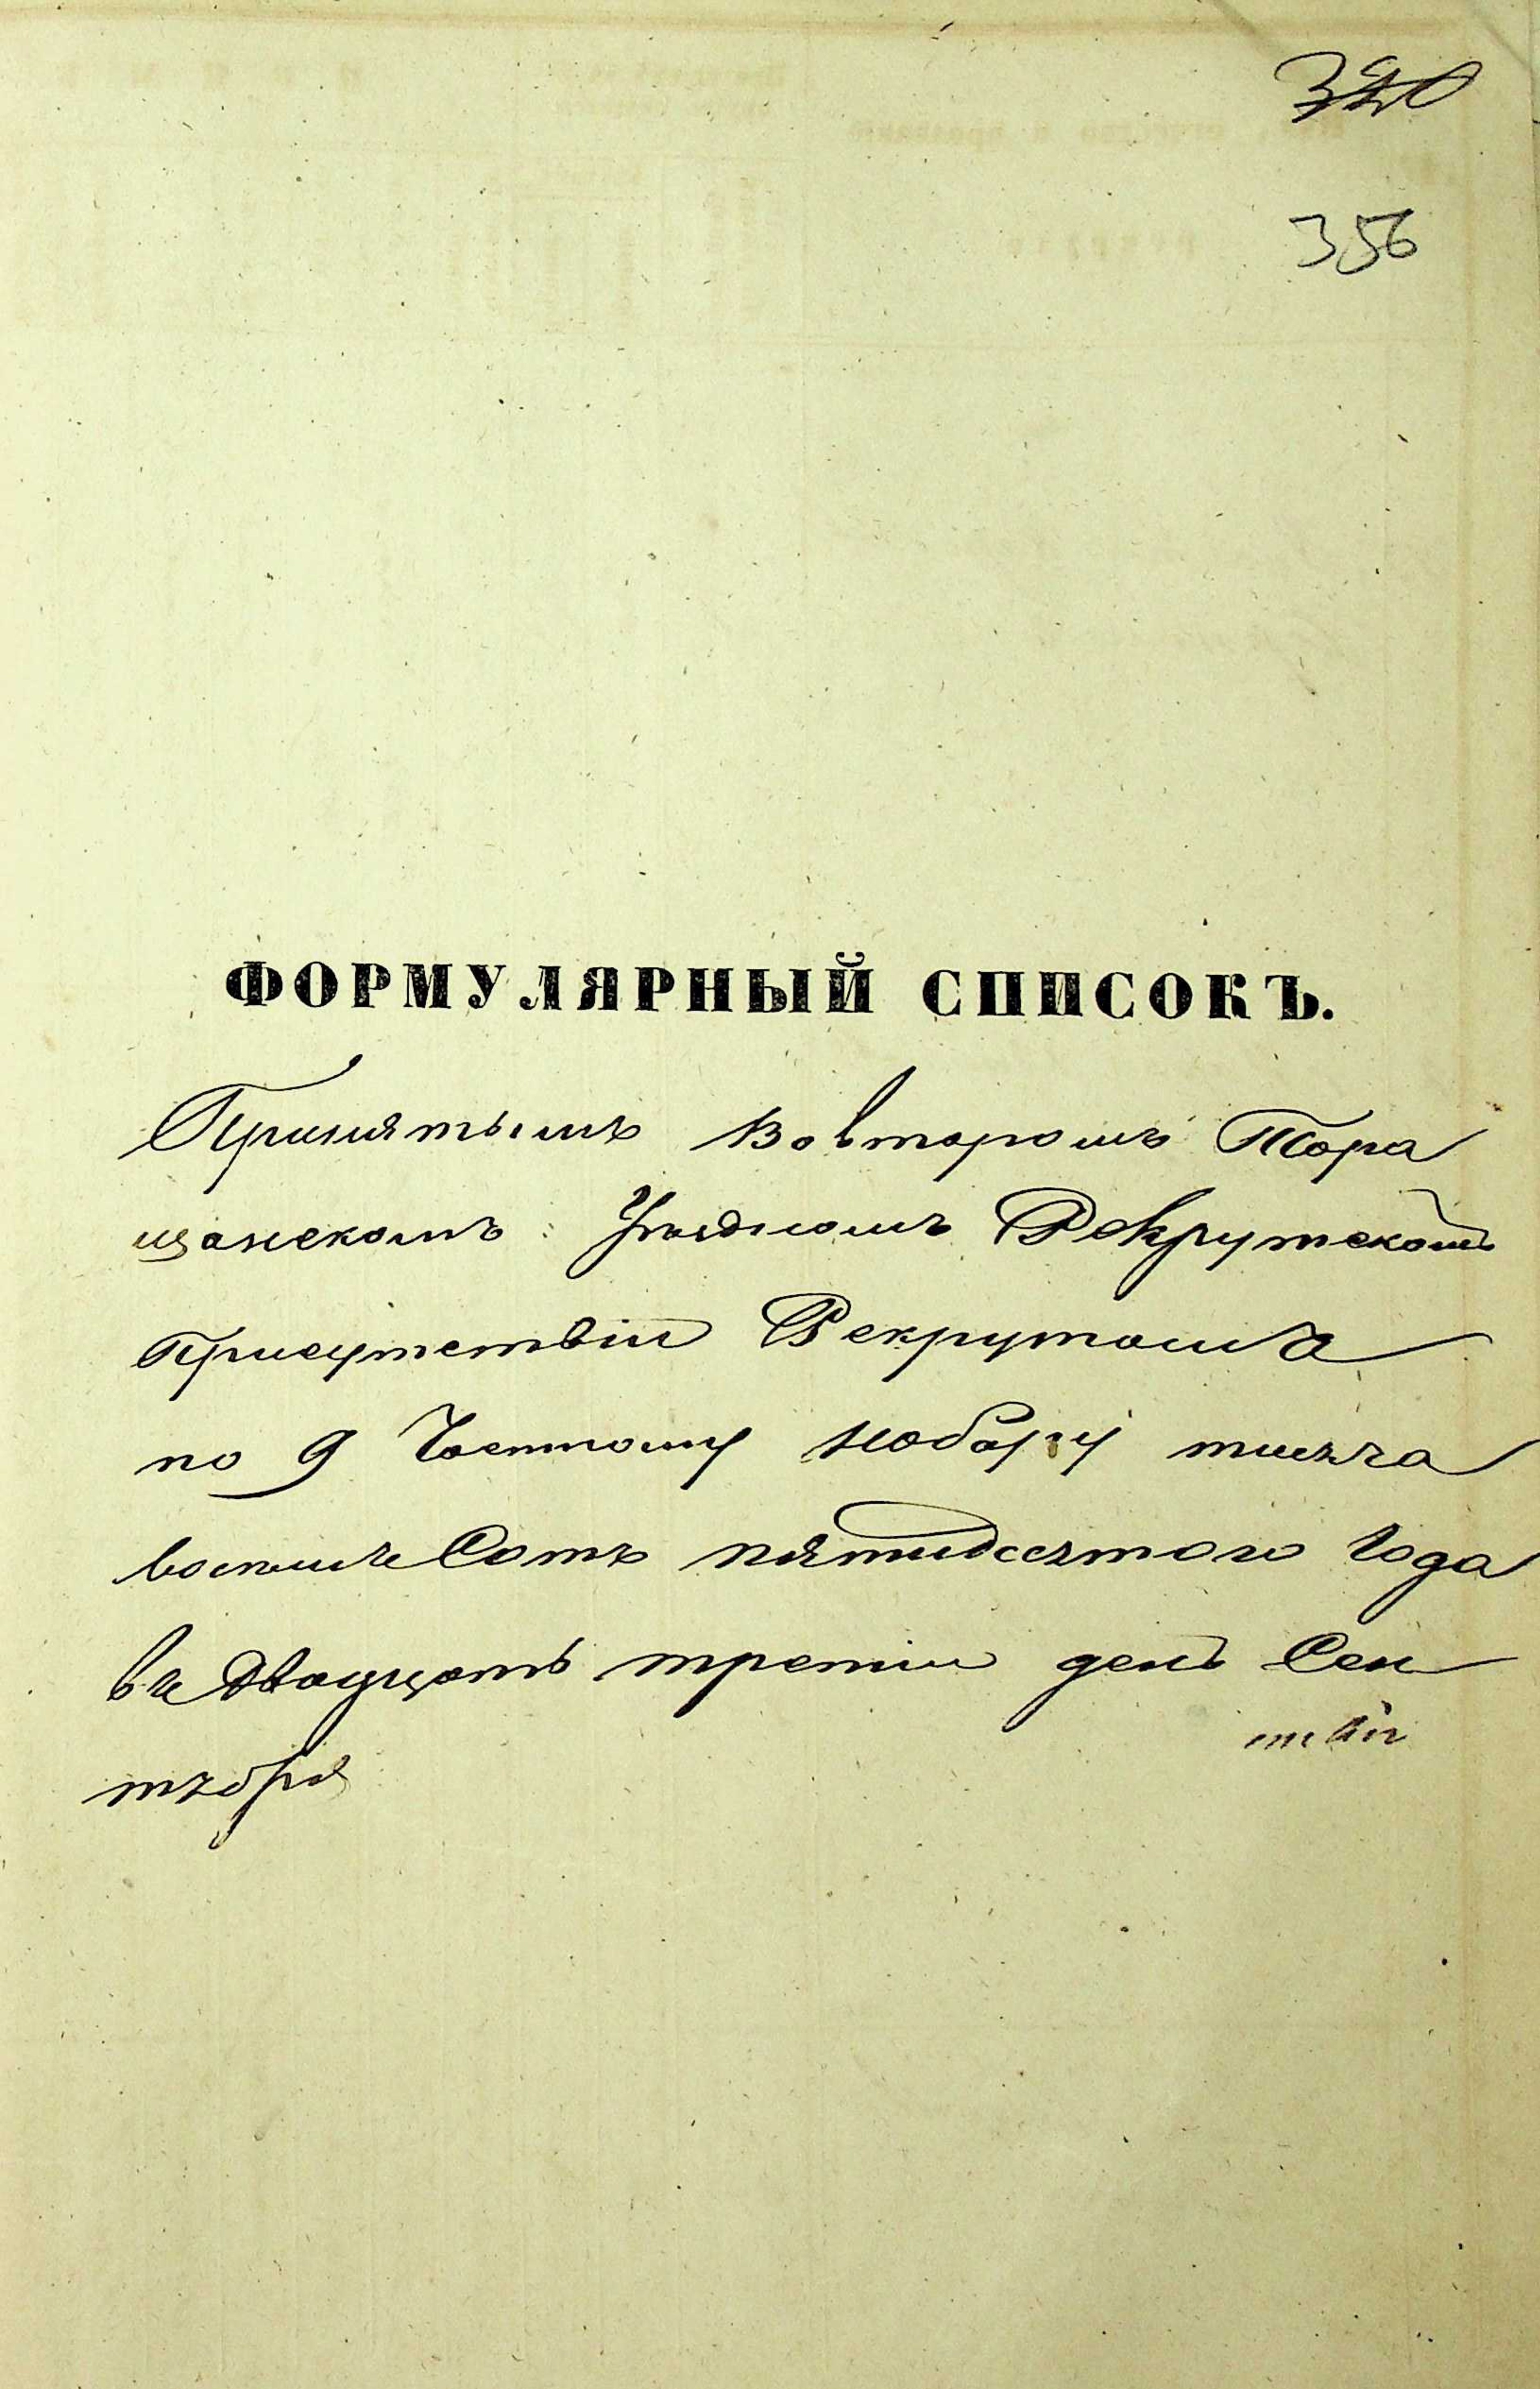 320
356
ФОРМУЛЯРНЫЙ СПИСОКЪ.
Принятымъ Вовторомъ Тора
щанскомъ Уѣздномъ Рекрутскомъ
присутствіи Рекрутомъ
по 9 Частному набору тысяча
восемь Сотъ пятидесятого Года
въ Двадцать третіи день Сен
тября